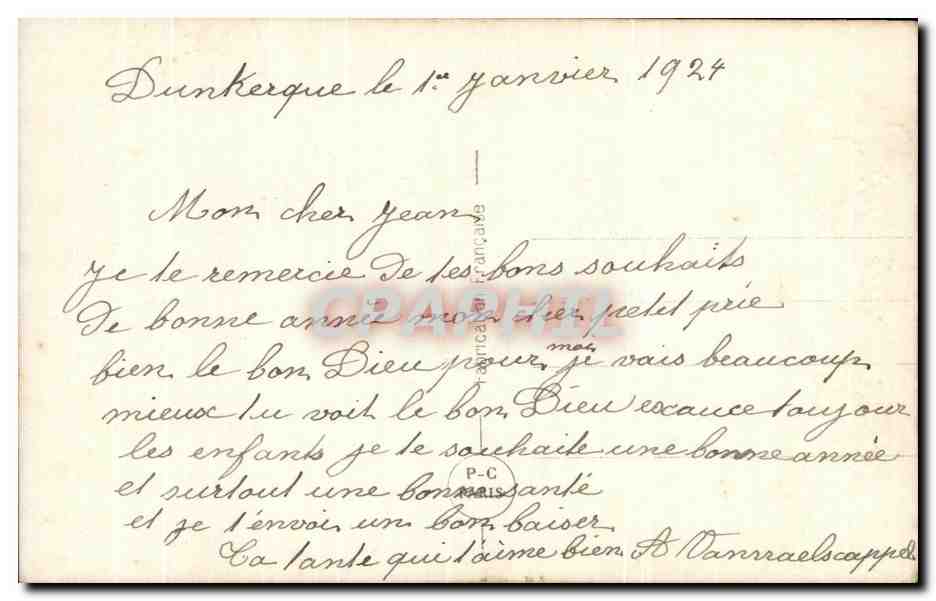 Dunkerque le 1er Janvier 1924
Mon cher Jean
Je te remercie de tes bons souhaits
de bonne année mon cher petit prie
bien le bon Dieu pour moi je vais beaucoup
mieux tu voit le bon Dieu exauce toujour
les enfants je te souhaite une bonne année
et surtout une bonne santé
et je t'envoi un bon baiser
Ta tante qui t'aime bien A
Fabrication Française
P-C
PARIS
CPAPHIL